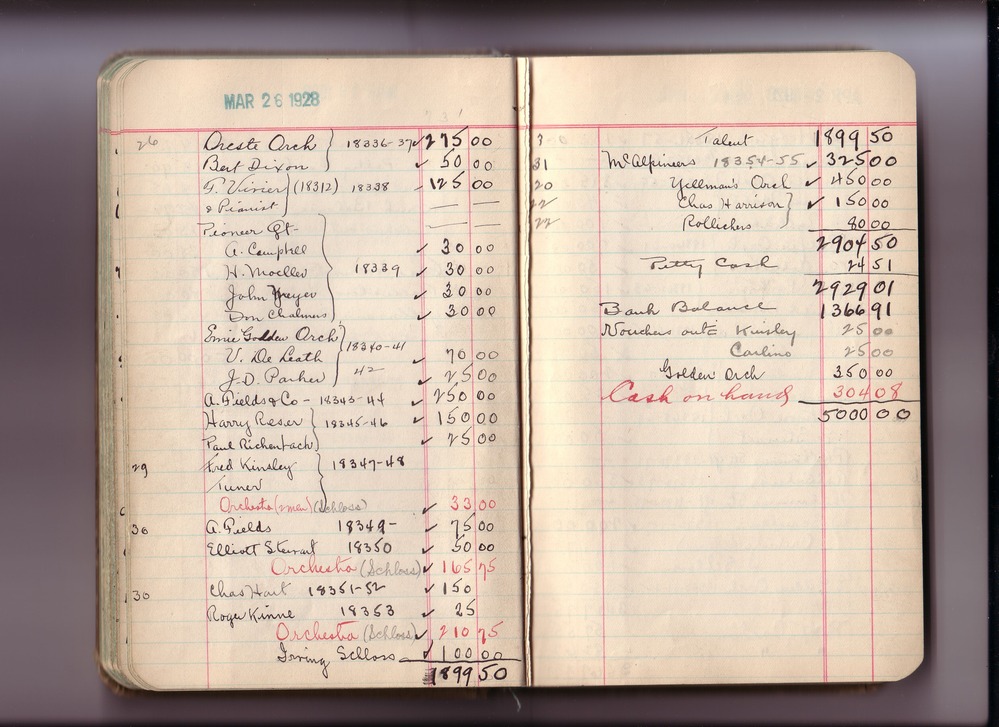 MAR 26 1928
26 Oreste Orch 18336-37 ✓ 275 00
Bert Dixon ✓ 50 00
(18312) 18338 125 00
& Pianist — —
Pioneer Qt- — —
A. Campbell ✓ 30 00
H. Moeller 18339 ✓ 30 00
John Meyer ✓ 30 00
Don Chalmers ✓ 30 00
Ernie Golden Orch
18340-41
V. De Leath ✓ 70 00
J.D. Parker 42 ✓ 25 00
A. Fields & Co - 18343-44 ✓ 250 00
Harry Reser 18345-46 ✓ 150 00
Paul Richenbach ✓ 25 00
29 Fred Kinsley 18347-48
Tuner
Orchestra (2 men) (Schloss) ✓ 33 00
30 A. Fields 18349- ✓ 75 00
Elliott Stewart 18350 ✓ 50 00
Orchestra (Schloss) ✓ 165 75
30 Chas Hart 18351-52 ✓ 150
Roger Kinne 18353 ✓ 25
Orchestra (Schloss) ✓ 210 75
Irving Schloss ✓ 100 00
1899 50
Talent 1899 50
31 McAlpineers 18354-55 ✓ 325 00
20 Yellman's Orch ✓ 450 00
22 Chas Harrison ✓ 150 00
22 Rollickers 80 00
2904 50
Petty Cash 24 51
2929 01
Bank Balance 1366 91
Vouchers out = Kinsley 25 00
Carlino 25 00
Golden Orch 350 00
Cash on hand 304 08
5000 00